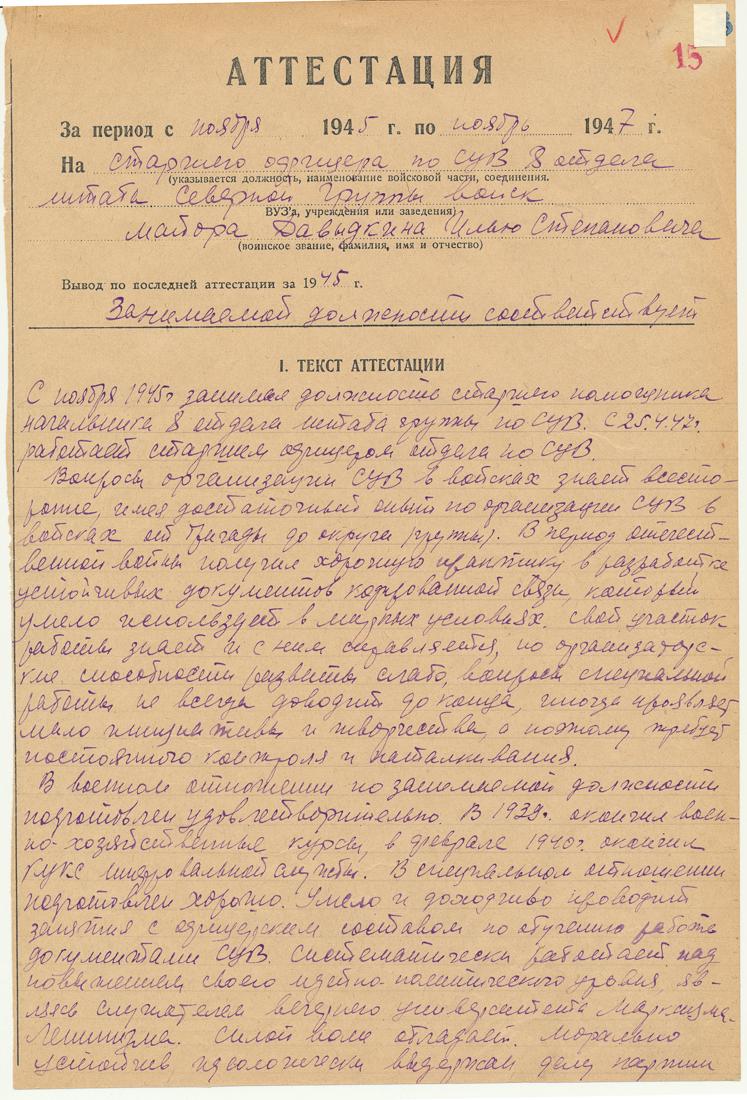 15
АТТЕСТАЦИЯ
За период с ноября 1945 г. по ноябрь 1947 г.
На старшего офицера по СУВ 8 отдела
(указывается должность, наименование войсковой части, соединения.
штаба Северной Группы войск
ВУЗ'а, учреждения или заведения)
майора Давыдкина Илью Степановича
(воинское звание, фамилия, имя и отчество)
Вывод по последней аттестации за 1945 г.
Занимаемой должности соответствует
I. ТЕКСТ АТТЕСТАЦИИ
С ноября 1945г занимал должность старшего помощника
начальника 8 отдела штаба группы по СУВ. С 25.4.47г.
работает старшим офицером отдела по СУВ.
Вопросы организации СУВ в войсках знает всесто-
ронне, имея достаточный опыт по организации СУВ в
войсках от бригады до округа (группы). В период отечест-
венной войны получил хорошую практику в разработке
устойчивых документов кодированной связи, который
умело использует в мирных условиях. Свой участок
работы знает и с ним справляется, но организаторс-
кие способности развиты слабо, вопросы специальной
работы не всегда доводит до конца, иногда проявляет
мало инициативы и творчества, а поэтому требует
постоянного контроля и наталкивания.
В военном отношении по занимаемой должности
подготовлен удовлетворительно. В 1939г. окончил воен-
но-хозяйственные курсы, в феврале 1940г. окончил
КУКС шифровальной службы. В специальном отношении
подготовлен хорошо. Умело и доходчиво проводит
занятия с офицерским составом по обучению работе
документами СУВ. Систематически работает над
повышением своего идейно-политического уровня, яв-
ляясь слушателем вечернего университета Марксизма-
Ленинизма. Силой воли обладает. Морально
устойчив идеологически выдержан делу партии